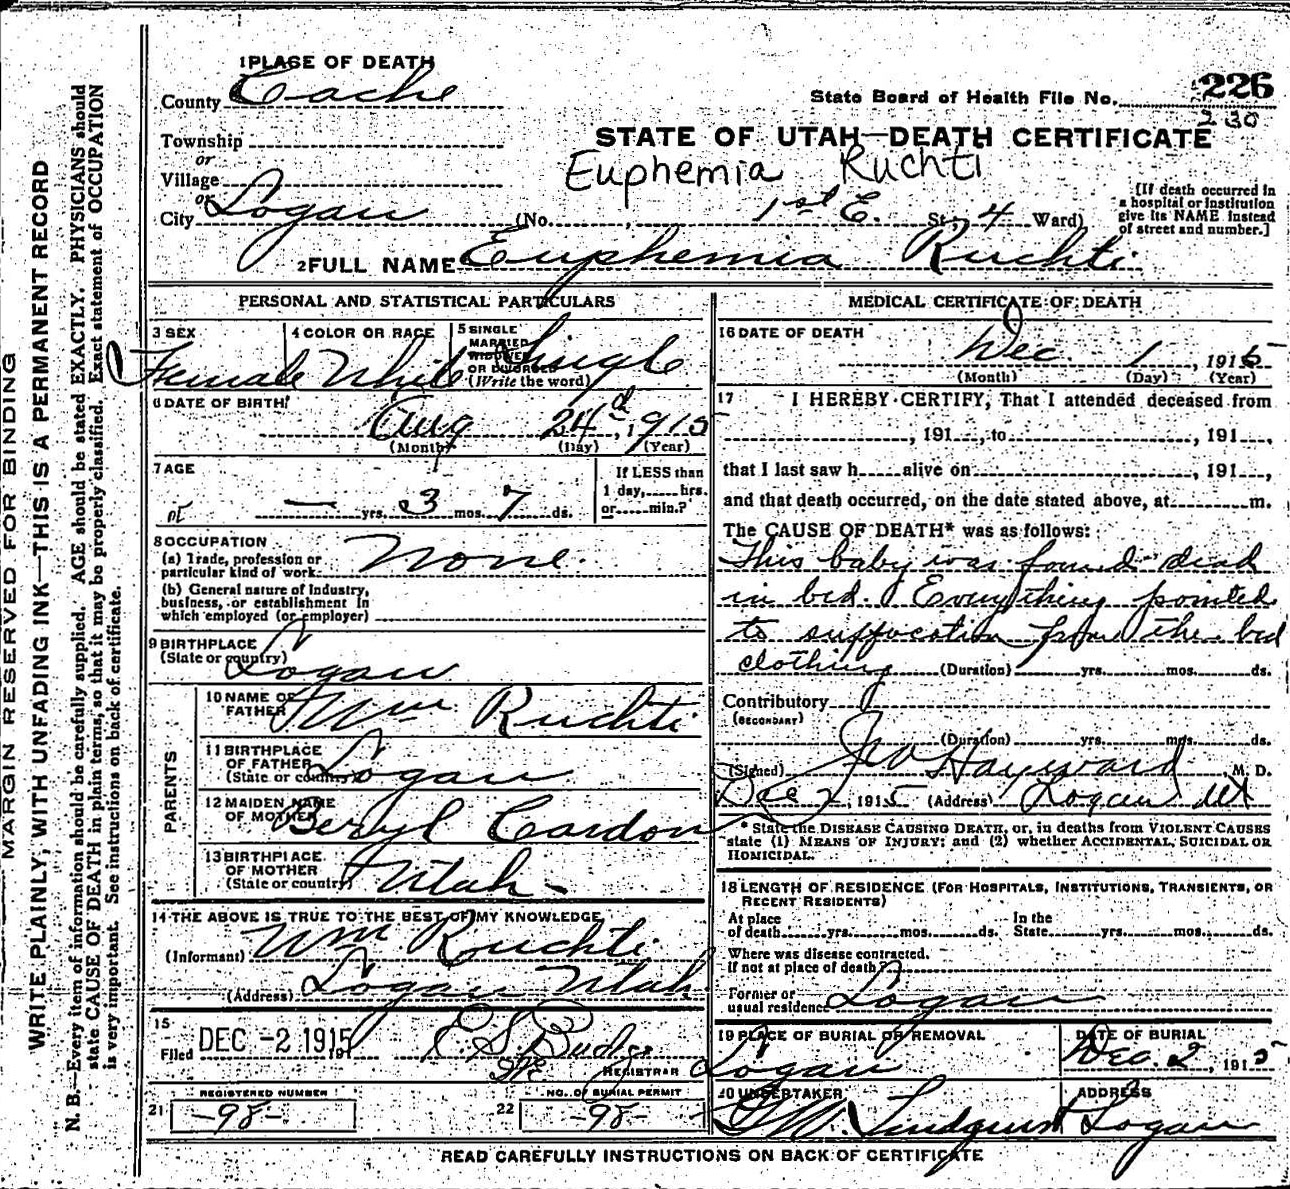 1 PLACE OF DEATH
County Cache
State Board of Health File No. 226
230
Township
or
Village
or
City Logan (No. 1st E. St; 4 Ward)
STATE OF UTAH—DEATH CERTIFICATE
Euphemia Ruchti
[If death occurred in
a hospital or institution
give its NAME instead
of street and number.]
2 FULL NAME Euphemia Ruchti
PERSONAL AND STATISTICAL PARTICULARS
3 SEX
Female
4 COLOR OR RACE
White
5 SINGLE
MARRIED
WIDOWED
OR DIVORCED
(Write the word)
Single
6 DATE OF BIRTH
Aug 24th, 1915
(Month) (Day) (Year)
7 AGE
— yrs. 3 mos. 7 ds.
If LESS than
1 day, hrs.
or min.?
8 OCCUPATION
(a) Trade, profession or
particular kind of work None.
(b) General nature of industry,
business, or establishment in
which employed (or employer)
9 BIRTHPLACE
(State or country) Logan
PARENTS
10 NAME OF
FATHER Wm Ruchti
11 BIRTHPLACE
OF FATHER
(State or country) Logan
12 MAIDEN NAME
OF MOTHER Beryl Cardon
13 BIRTHPLACE
OF MOTHER
(State or country) Utah -
14 THE ABOVE IS TRUE TO THE BEST OF MY KNOWLEDGE
(Informant) Wm Ruchti
(Address) Logan Utah.
15
Filed DEC -2 1915 191 E S Budge
REGISTRAR
REGISTERED NUMBER
21 -98-
NO. OF BURIAL PERMIT
22 -98-
MEDICAL CERTIFICATE OF DEATH
16 DATE OF DEATH
Dec 1, 1915
(Month) (Day) (Year)
17 I HEREBY CERTIFY, That I attended deceased from
, 191 , to , 191 ,
that I last saw h alive on , 191 ,
and that death occurred, on the date stated above, at m.
The CAUSE OF DEATH* was as follows:
This baby was found dead
in bed. Everything pointed
to suffocation from the bed
clothing (Duration) yrs. mos. ds.
Contributory
(SECONDARY)
(Duration) yrs. mos. ds.
(Signed) Hayward M. D.
Dec 2, 1915 (Address) Logan Ut
* State the DISEASE CAUSING DEATH, or, in deaths from VIOLENT CAUSES
state (1) MEANS OF INJURY; and (2) whether ACCIDENTAL, SUICIDAL OR
HOMICIDAL.
18 LENGTH OF RESIDENCE (FOR HOSPITALS, INSTITUTIONS, TRANSIENTS, OR
RECENT RESIDENTS)
At place
of death yrs. mos. ds.
In the
State yrs. mos. ds.
Where was disease contracted,
if not at place of death?
Former or
usual residence Logan
19 PLACE OF BURIAL OR REMOVAL
Logan
DATE OF BURIAL
Dec. 2, 1915
20 UNDERTAKER
Lindquist
ADDRESS
Logan
READ CAREFULLY INSTRUCTIONS ON BACK OF CERTIFICATE
MARGIN RESERVED FOR BINDING
WRITE PLAINLY, WITH UNFADING INK—THIS IS A PERMANENT RECORD
N. B.—Every item of information should be carefully supplied. AGE should be stated EXACTLY. PHYSICIANS should
state CAUSE OF DEATH in plain terms, so that it may be properly classified. Exact statement of OCCUPATION
is very important. See instructions on back of certificate.